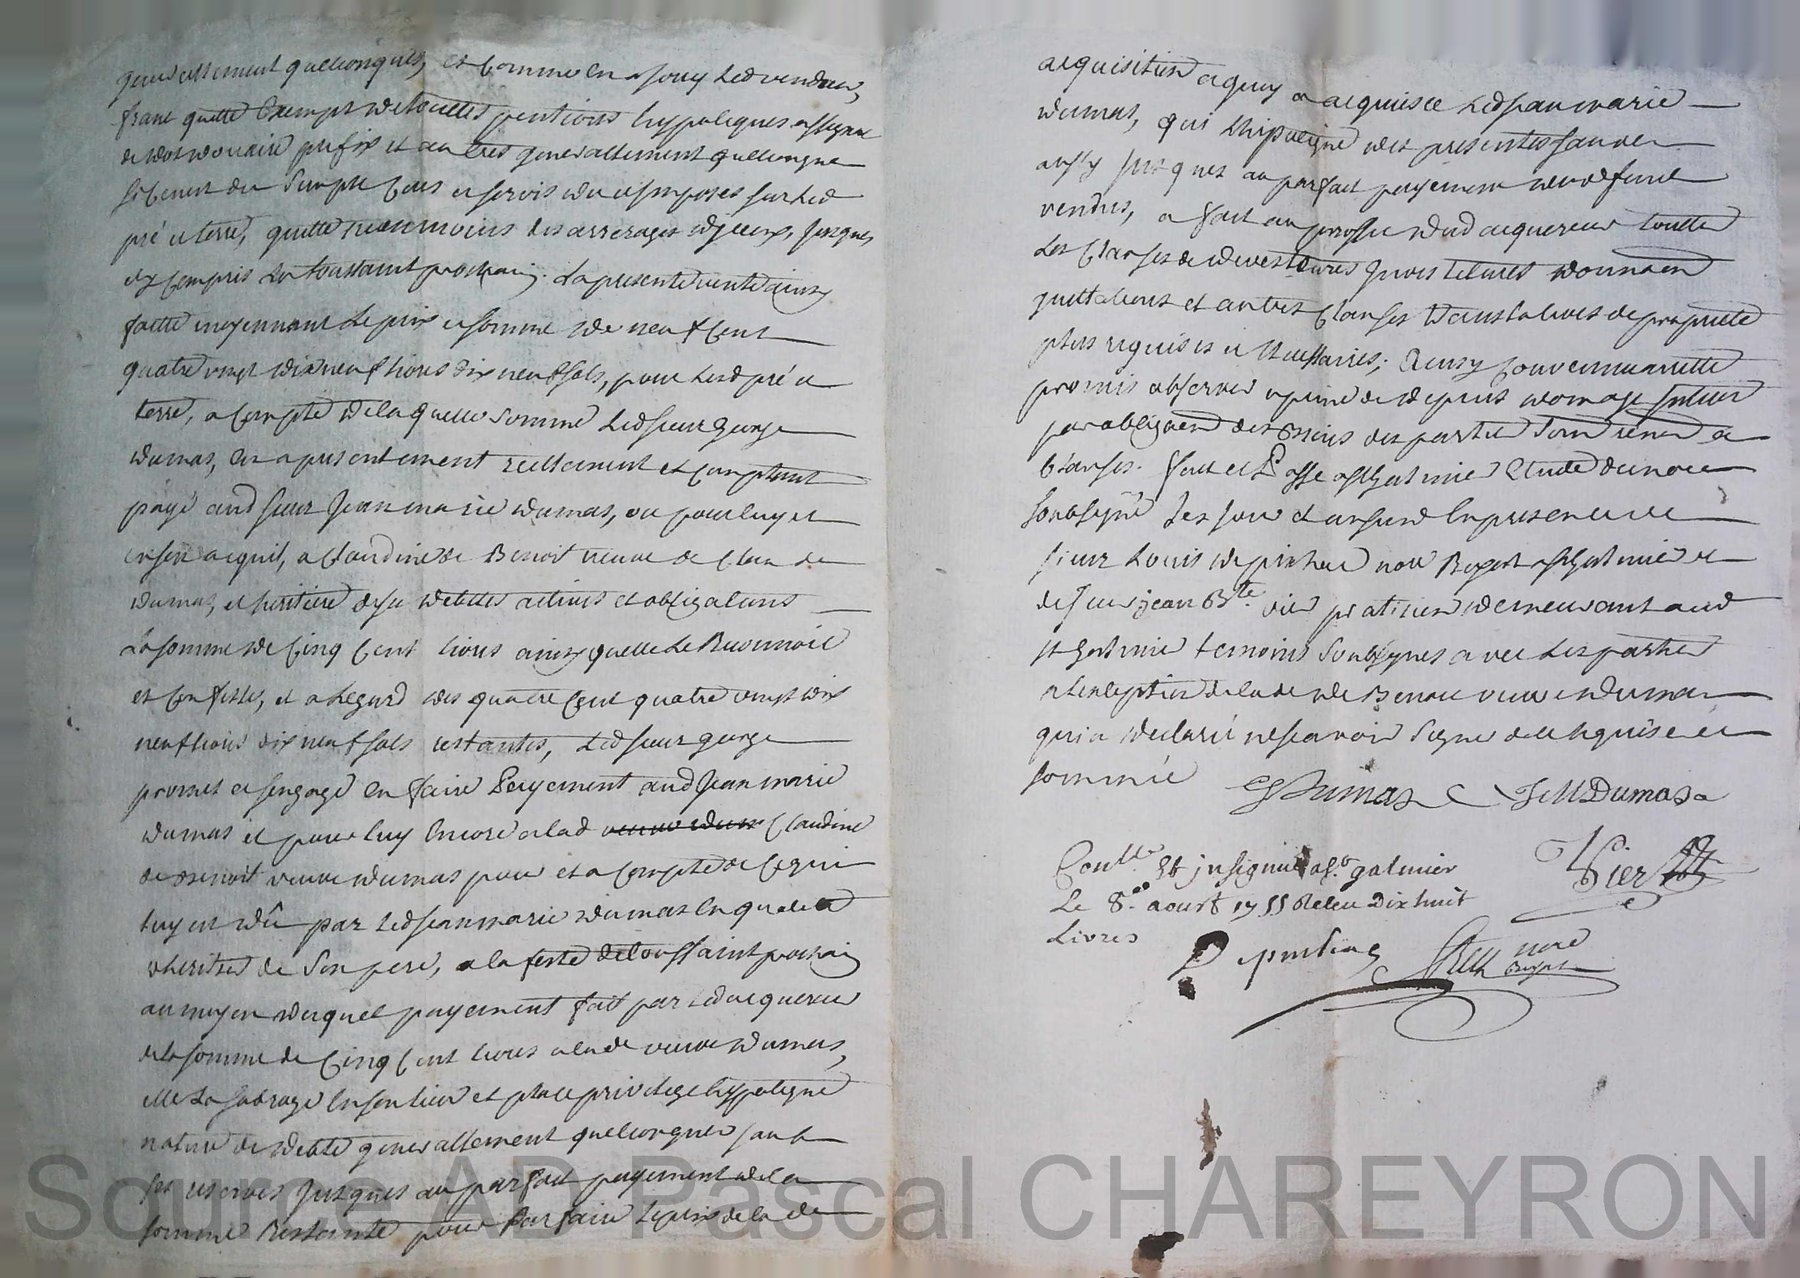 generallement quelconques, et comme en a jouy led vendeur,
franc quitte Exempt de touttes pentions hyppoteques assignaõn
de dot douaire prefix et autres generallement quelconque
si cenest du simple Cens et servis du et imposés sur led
pré et terre, quitte neanmoins des arrerages diceux, jusques
et y compris la toussaint prochain, La presente vente ainsy
faitte moyennant le prix et somme de neuf Cent
quatre vingt dix neuf livres dix neuf sols, pour lesd pré et
terre, a compte de laquelle somme Led sieur george
dumas, en a presentement reellement et comptant
payé aud sieur Jean marie dumas, ou pour luy et
en son acquit, a Claudine de Benoit veuve de Claude
dumas, et heritiere de ses debttes actives et obligations
La somme de Cinq Cent livres ainsy quelle Le Reconnoit
et Confesse, et a legard des quatre Cent quatre vingt dix
neuf livres dix neuf sols restantes, Led sieur george
promet et sengage en faire Payement aud Jean marie
dumas et pour luy Encore a lad veuve dumas Claudine
de Benoit veuve dumas pour et a Compte de Ce qui
luy est dû par Led Jean marie dumas En qualité
dheritier de Son pere, a la feste de toussaint prochain
au moyen duquel payement fait par Led acquereur
de la somme de Cinq Cent livres a lade veuve dumas,
elle La subroge En son lieu et place privilege hyppoteque
nature de debte generallement quelconques sauf
ses reserves jusques au parfait payement de la
somme Restante pour Parfaire Le prix de lade
acquisition a quoy a acquiescé Led Jean marie
dumas, qui Lhipoteque des presentes sauver
aussy jusques au parfait payement
vendus, a fait au proffit dud acquereur toutte
Les Clauses de devestitures Investitures donnaõn
quittations et autres Clauses translatives de proprieté
plus requises et Necessaires; Ainsy Convenu arretté
promis observer a peine de depens domage interest
par obligaõn des Biens des parties soum renon et
Clauses. fait et Passé a St galmier Etude du nore
soubsigné Les jour et an susd En presence de
sieur Louis depinhac nore Royal a St galmier et
de sieur jean Bte vier praticien demeurant aud
St galmier temoins Soubsignes avec Les parties
a lexeption de lade de Benoit veuve dumas
qui a declaré ne scavoir Signer de ce Enquise et
sommée
G Dumas J M Dumas
Conllé et insignué a St galmier
Le 8e aoust 1755 Receu Dix huit
Livres
Vier
Depinhac
nore
Royal
Source AD Pascal CHAREYRON